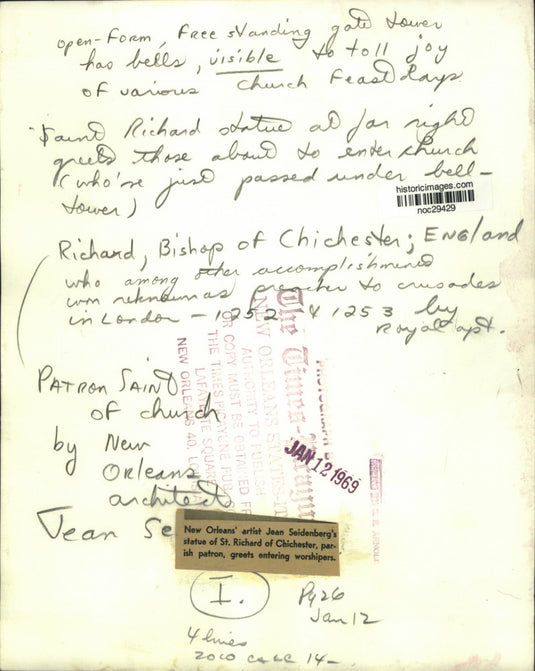 open-Form, Free standing gate tower
has bells, visible to toll joy
of various Church Feast days
Saint Richard statue at far right
greets those about to enter church
(who've just passed under bell-
tower)
historicimages.com
noc29429
Richard, Bishop of Chichester; ENGland
who among other accomplishments
won reknown as preacher to crusades
in London - 1252 & 1253 by
Royal apt.
PATRON SAINT
of church
by New
Orleans
architect
Jean Se
The Times-Picayune
NEW ORLEANS STATES-I
AUTHORITY TO PUBLISH
OR COPY MUST BE OBTAINED FR
THE TIMES-PICAYUNE PUB.
LAFAYETTE SQUARE
NEW ORLEANS 40, LA
JAN 12 1969
New Orleans' artist Jean Seidenberg's
statue of St. Richard of Chichester, par-
ish patron, greets entering worshipers.
I.
Pg 26
Jan 12
4 lines
14